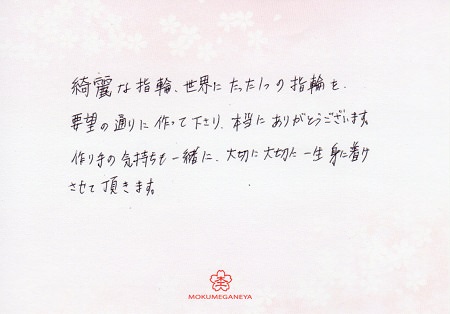 綺麗な指輪、世界にたった1つの指輪を、
要望の通りに作って下さり、本当にありがとうございます。
作り手の気持ちも一緒に、大切に大切に一生身に着け
させて頂きます。
MOKUMEGANEYA